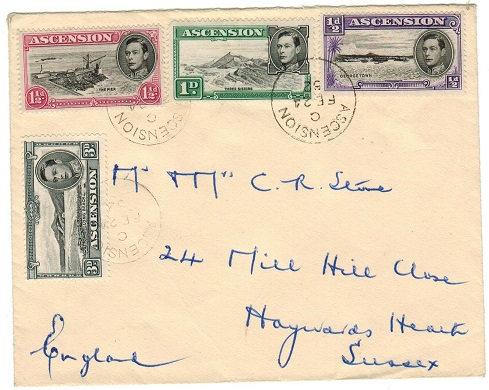 ASCENSION
1½D
1½D
THE PIER
ASCENSION
1D
THREE SISTERS
½D
ASCENSION
½D
GEORGETOWN
ASCENSION
C
FE 24
ASCENSION
3D
ASCENSION
3D
ASCENSION
C
FE 24
Mr Mrs C. R. Stone
24 Mill Hill Close
Haywards Heath
Sussex
England